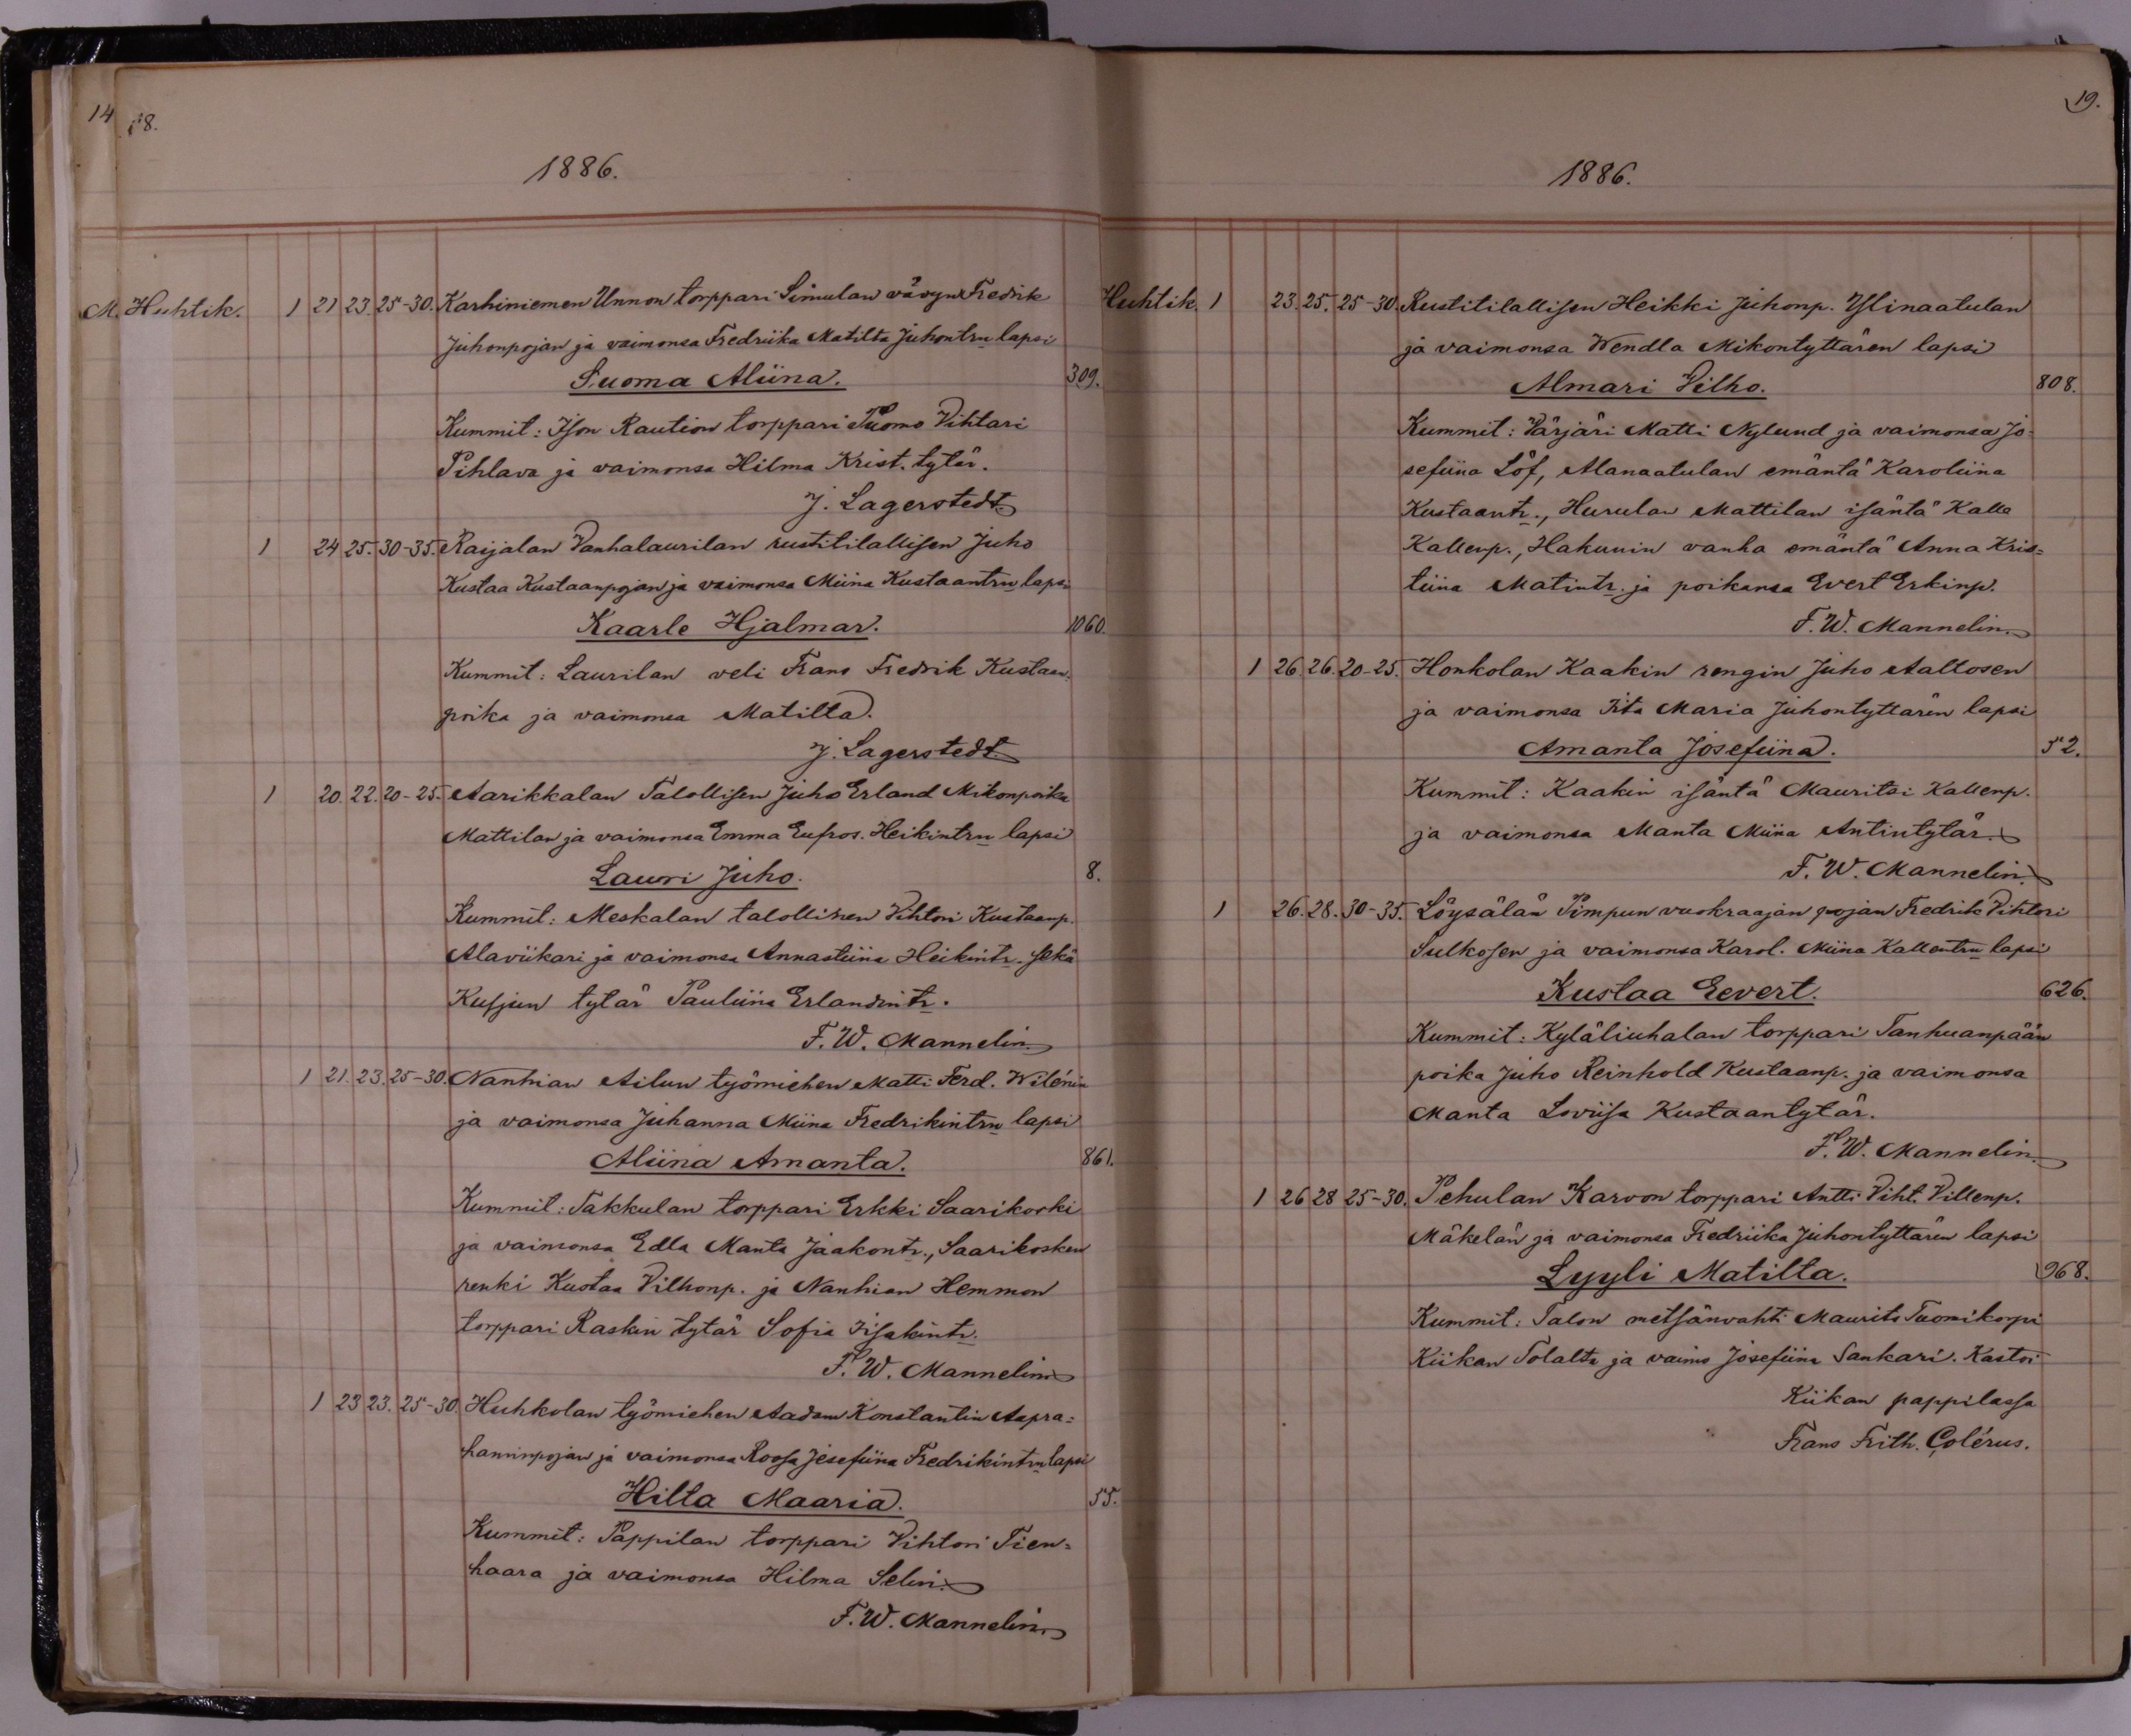 14 18.
1886.
M. Huhtik. 1 21 23. 25-30. Karhiniemen Unnon torppari Simulan vävyn Fredrik
Juhonpojan ja vaimonsa Fredriika Matilta Juhontrn lapsi
Suoma Aliina. 309.
Kummit: Ison Raution torppari Tuomo Vihtari
Pihlava ja vaimonsa Hilma Krist. tytär.
J. Lagerstedt
1 24 25. 30-35. Raijalan Vanhalaurilan rustitilallisen Juho
Kustaa Kustaanpojan ja vaimonsa Miina Kustaantrn lapsi
Kaarle Hjalmar. 1060.
Kummit: Laurilan veli Frans Fredrik Kustaan-
poika ja vaimonsa Matilta.
J. Lagerstedt
1 20. 22. 20-25. Aarikkalan Talollisen Juho Erland Mikonpoika
Mattilan ja vaimonsa Emma Eufros. Heikintrn lapsi
Lauri Juho. 8.
Kummit: Meskalan talollinen Vihtori Kustaanp.
Alaviikari ja vaimonsa Annastiina Heikintr. sekä
tytär Pauliina Erlandintr.
F. W. Mannelin.
1 21. 23. 25-30. Nanhian Ailun työmiehen Matti Ferd. Wilénin
ja vaimonsa Juhanna Miina Fredrikintrn lapsi
Aliina Amanta. 861.
Kummit: Takkulan torppari Erkki Saarikoski
ja vaimonsa Edla Manta Jaakontr., Saarikosken
renki Kustaa Vilhonp. ja Nanhian Hemmon
torppari Raskin tytär Sofia Iisakintr.
F. W. Mannelin
1 23 23. 25-30. Huhkolan työmiehen Aadam Konstantin Aapra-
haminpojan ja vaimonsa Roosa Josefiina Fredrikintrn lapsi
Hilta Maaria. 55.
Kummit: Pappilan torppari Vihtori Tien-
haara ja vaimonsa Hilma Selin.
F. W. Mannelin.
19.
1886.
Huhtik. 1 23. 25. 25-30. Rustitilallisen Heikki Juhonp. Ylinaatulan
ja vaimonsa Wendla Mikontyttären lapsi
Almari Vilho. 808.
Kummit: Värjäri Matti Nylund ja vaimonsa Jo-
sefiina Löf, Alanaatulan emäntä Karoliina
Kustaantr., Hurulan Mattilan isäntä Kalle
Kallenp., Hakunin vanha emäntä Anna Kris-
tiina Matintr. ja poikansa Evert Erkinp.
F. W. Mannelin.
1 26. 26. 20-25. Honkolan Kaakin rengin Juho Aaltosen
ja vaimonsa Iita Maria Juhontyttären lapsi
Amanta Josefiina. 52.
Kummit: Kaakin isäntä Mauritsi Kallenp.
ja vaimonsa Manta Miina Antintytär.
F. W. Mannelin.
1 26. 28. 30-35. Löysälän Pimpun vuokraajan pojan Fredrik Vihtori
Sulkosen ja vaimonsa Karol. Miina Kallentrn lapsi
Kustaa Eevert. 626.
Kummit: Kyläliuhalan torppari Tanhuanpään
poika Juho Reinhold Kustaanp. ja vaimonsa
Manta Loviisa Kustaantytär.
F. W. Mannelin.
1 26 28 25-30. Pehulan Karvon torppari Antti Viht. Villenp.
Mäkelän ja vaimonsa Fredriika Juhontyttären lapsi
Lyyli Matilta. 968.
Kummit: Talon metsänvahti Maurits Tuomikorpi
Kiikan Tolalta ja vaimo Josefiina Sankari. Kastoi
Kiikan pappilassa
Frans Frith. Colérus.